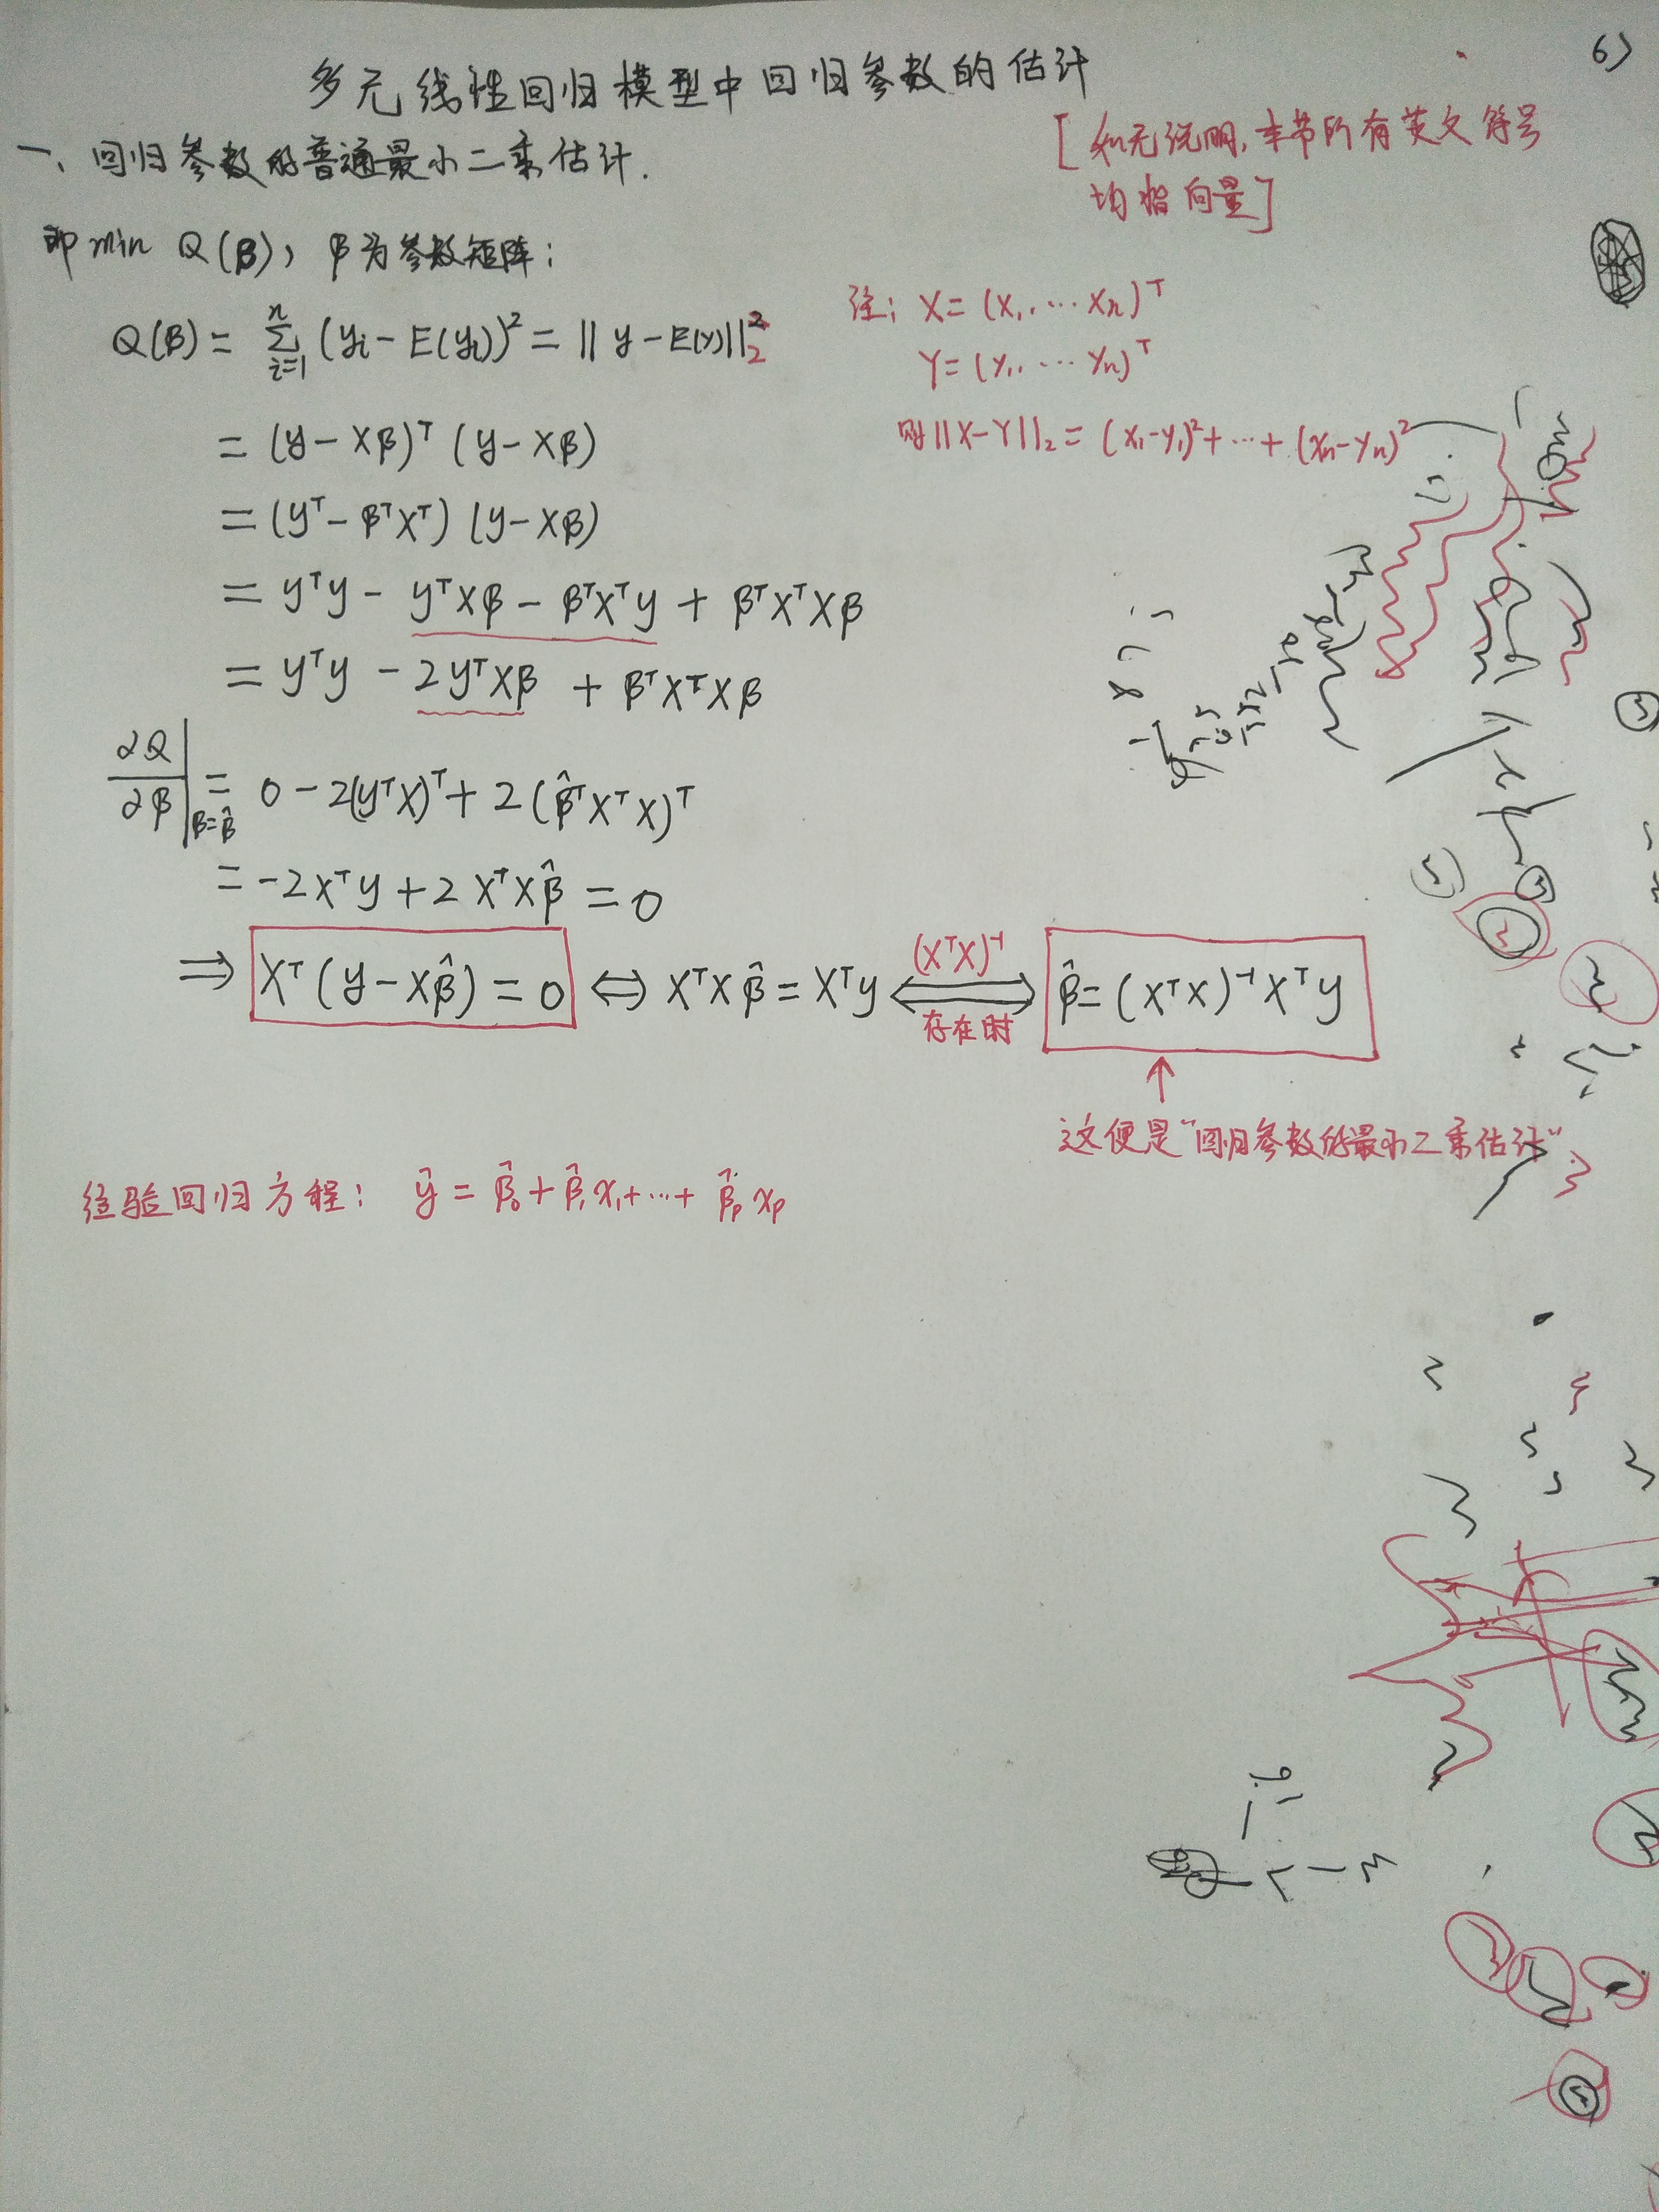 6)
多元线性回归模型中回归参数的估计
[如无说明,本节所有英文符号
均指向量]
一、回归参数的普通最小二乘估计.
即 min Q(β), β为参数矩阵:
Q(β) = Σ_{i=1}^{n} (yi - E(yi))² = || y - E(y)||₂²
注: X = (x₁, ⋯ xn)ᵀ
Y = (y₁, ⋯ yn)ᵀ
则 ||X-Y||₂ = (x₁-y₁)² + ⋯ + (xn-yn)²
= (y - Xβ)ᵀ (y - Xβ)
= (yᵀ - βᵀXᵀ) (y - Xβ)
= yᵀy - yᵀXβ - βᵀXᵀy + βᵀXᵀXβ
= yᵀy - 2yᵀXβ + βᵀXᵀXβ
∂Q/∂β |β=β̂ = 0 - 2(yᵀX)ᵀ + 2(β̂ᵀXᵀX)ᵀ
= -2Xᵀy + 2XᵀXβ̂ = 0
⇒ Xᵀ(y - Xβ̂) = 0 ⇔ XᵀXβ̂ = Xᵀy ⇔ (XᵀX)⁻¹ 存在时 β̂ = (XᵀX)⁻¹Xᵀy
↑
这便是“回归参数的最小二乘估计”
经验回归方程: ŷ = β̂₀ + β̂₁x₁ + ⋯ + β̂p xp